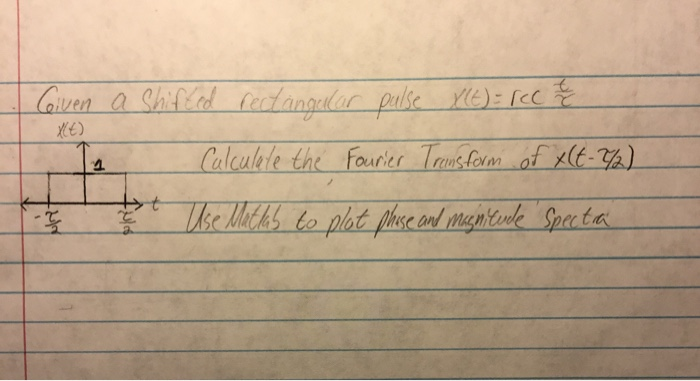 Given a Shifted rectangular pulse x(t) = rec t/τ
x(t)
1
Calculate the Fourier Transform of x(t-τ/2)
-τ/2 τ/2 t
Use Matlab to plot phase and magnitude Spectra